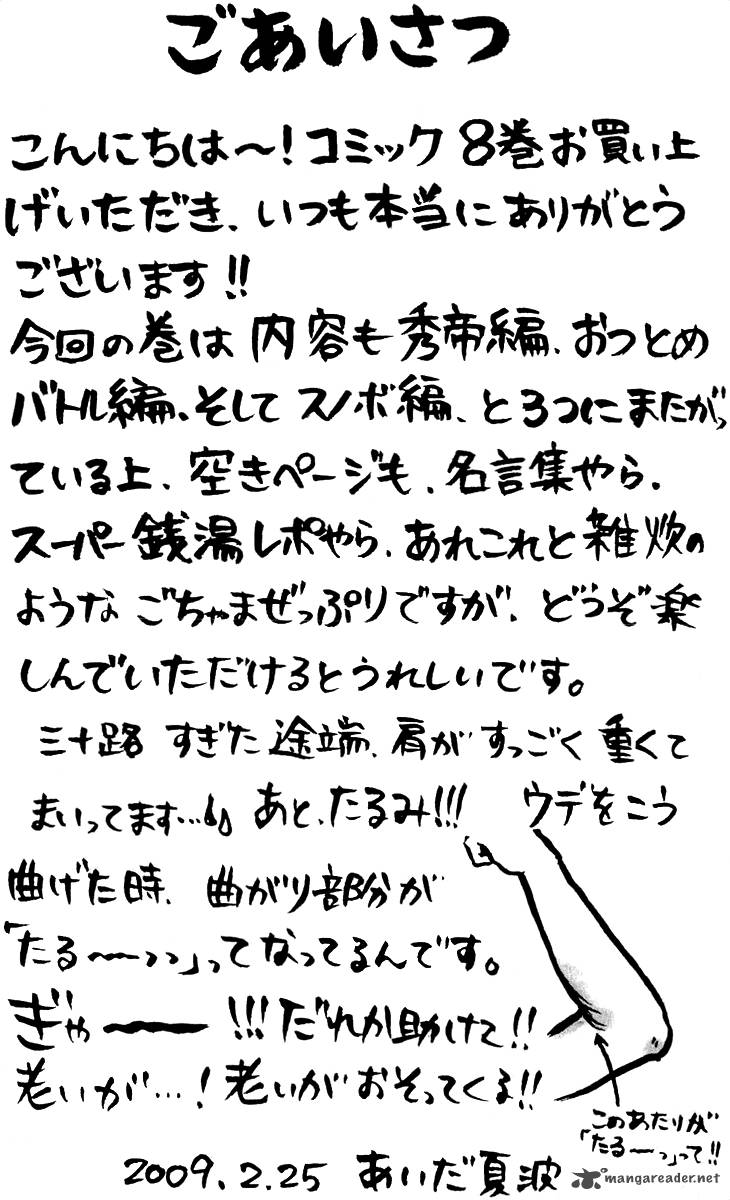 ごあいさつ
こんにちは～!コミック 8巻お買い上
げいただき、いつも本当にありがとう
ございます!!
今回の巻は 内容も秀帝編、おつとめ
バトル編、そして スノボ編、と3つにまたがっ
ている上、空きページも、名言集やら、
スーパー銭湯レポやら、あれこれと雑炊の
ような ごちゃまぜっぷりですが、どうぞ楽
しんでいただけるとうれしいです。
三十路 すぎた途端、肩が すっごく 重くて
まいってます…♪ あと、たるみ!!! ウデをこう
曲げた時、曲がり部分が
「たる～～っっ」ってなってるんです。
ぎゃーー!!!だれか助けて!!
老いが…!老いがおそってくる!!
このあたりが
「たる～っ」って!!
2009.2.25 あいだ夏波
mangareader.net